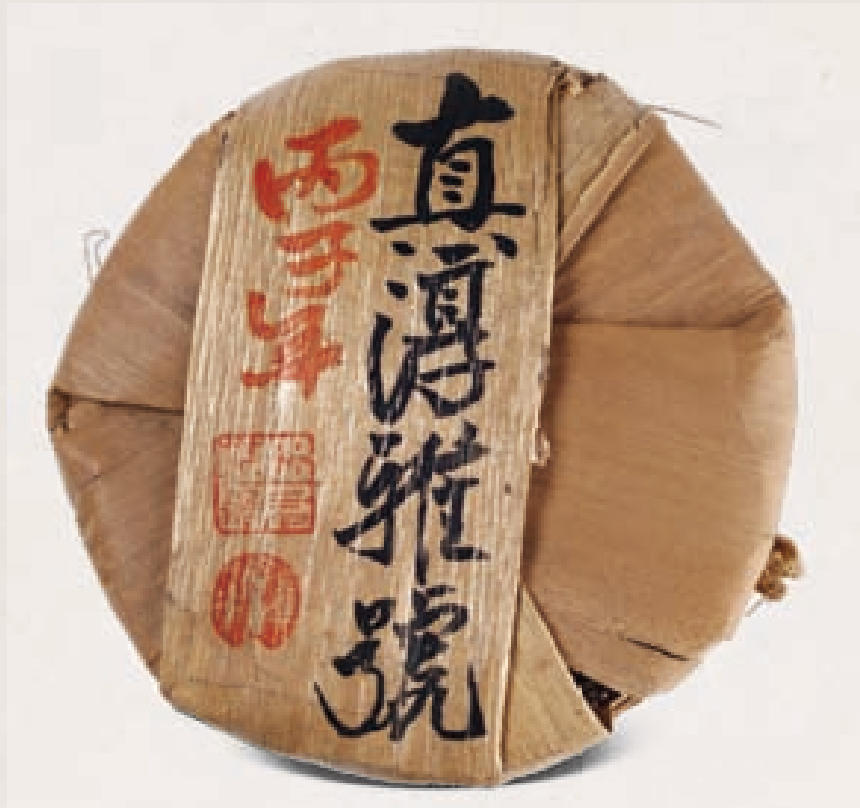 真淳雅號
丙子年